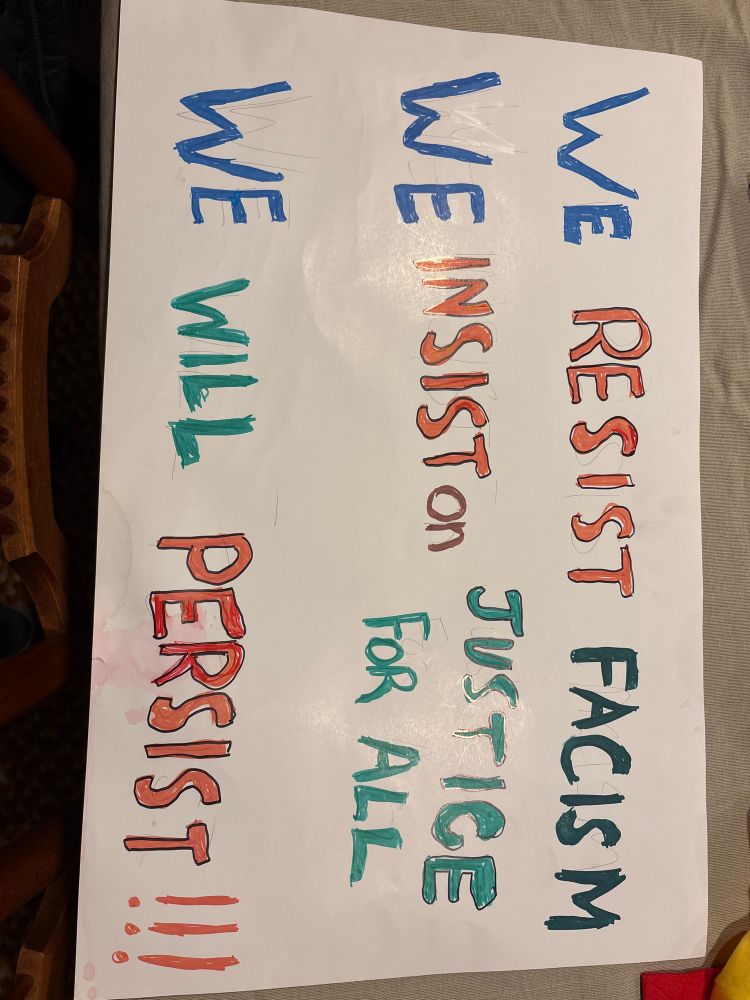 WE RESIST FACISM
WE INSIST on JUSTICE
FOR ALL
WE WILL PERSIST!!!